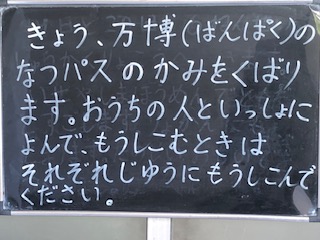 きょう、万博(ばんぱく)の
なつパスのかみをくばり
ます。おうちの人といっしょに
よんで、もうしこむときは
それぞれじゆうにもうしこんで
ください。